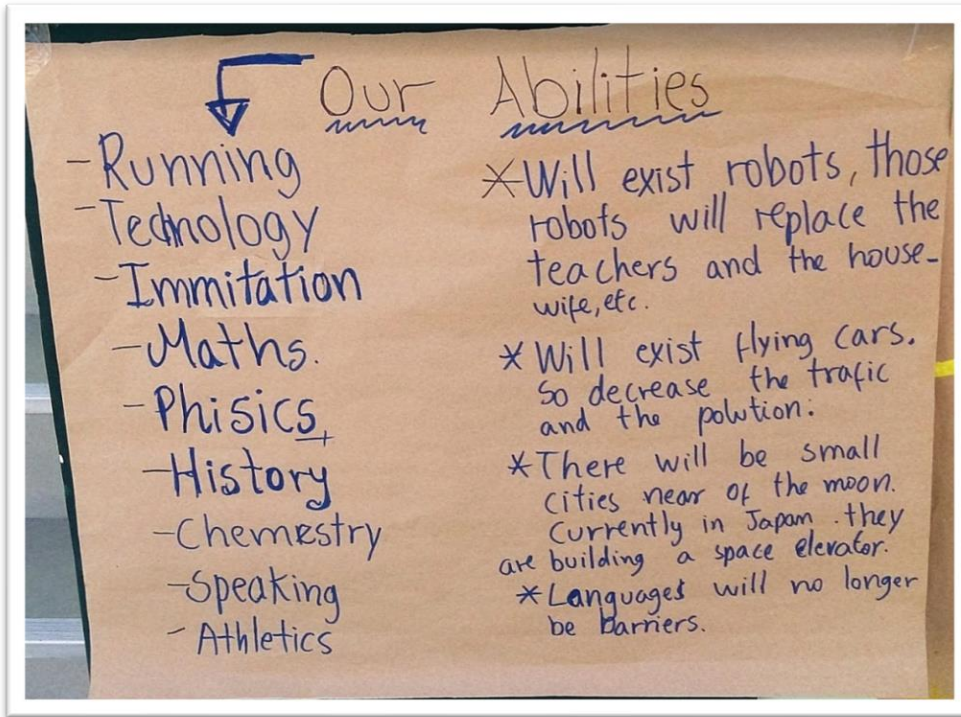 Our Abilities
- Running
- Technology
- Immitation
- Maths.
- Phisics
- History
- Chemestry
- Speaking
- Athletics
* Will exist robots, those
robots will replace the
teachers and the house-
wife, etc.
* Will exist flying cars.
So decrease the trafic
and the polution.
* There will be small
cities near of the moon.
Currently in Japan they
are building a space elevator.
* Languages will no longer
be barriers.